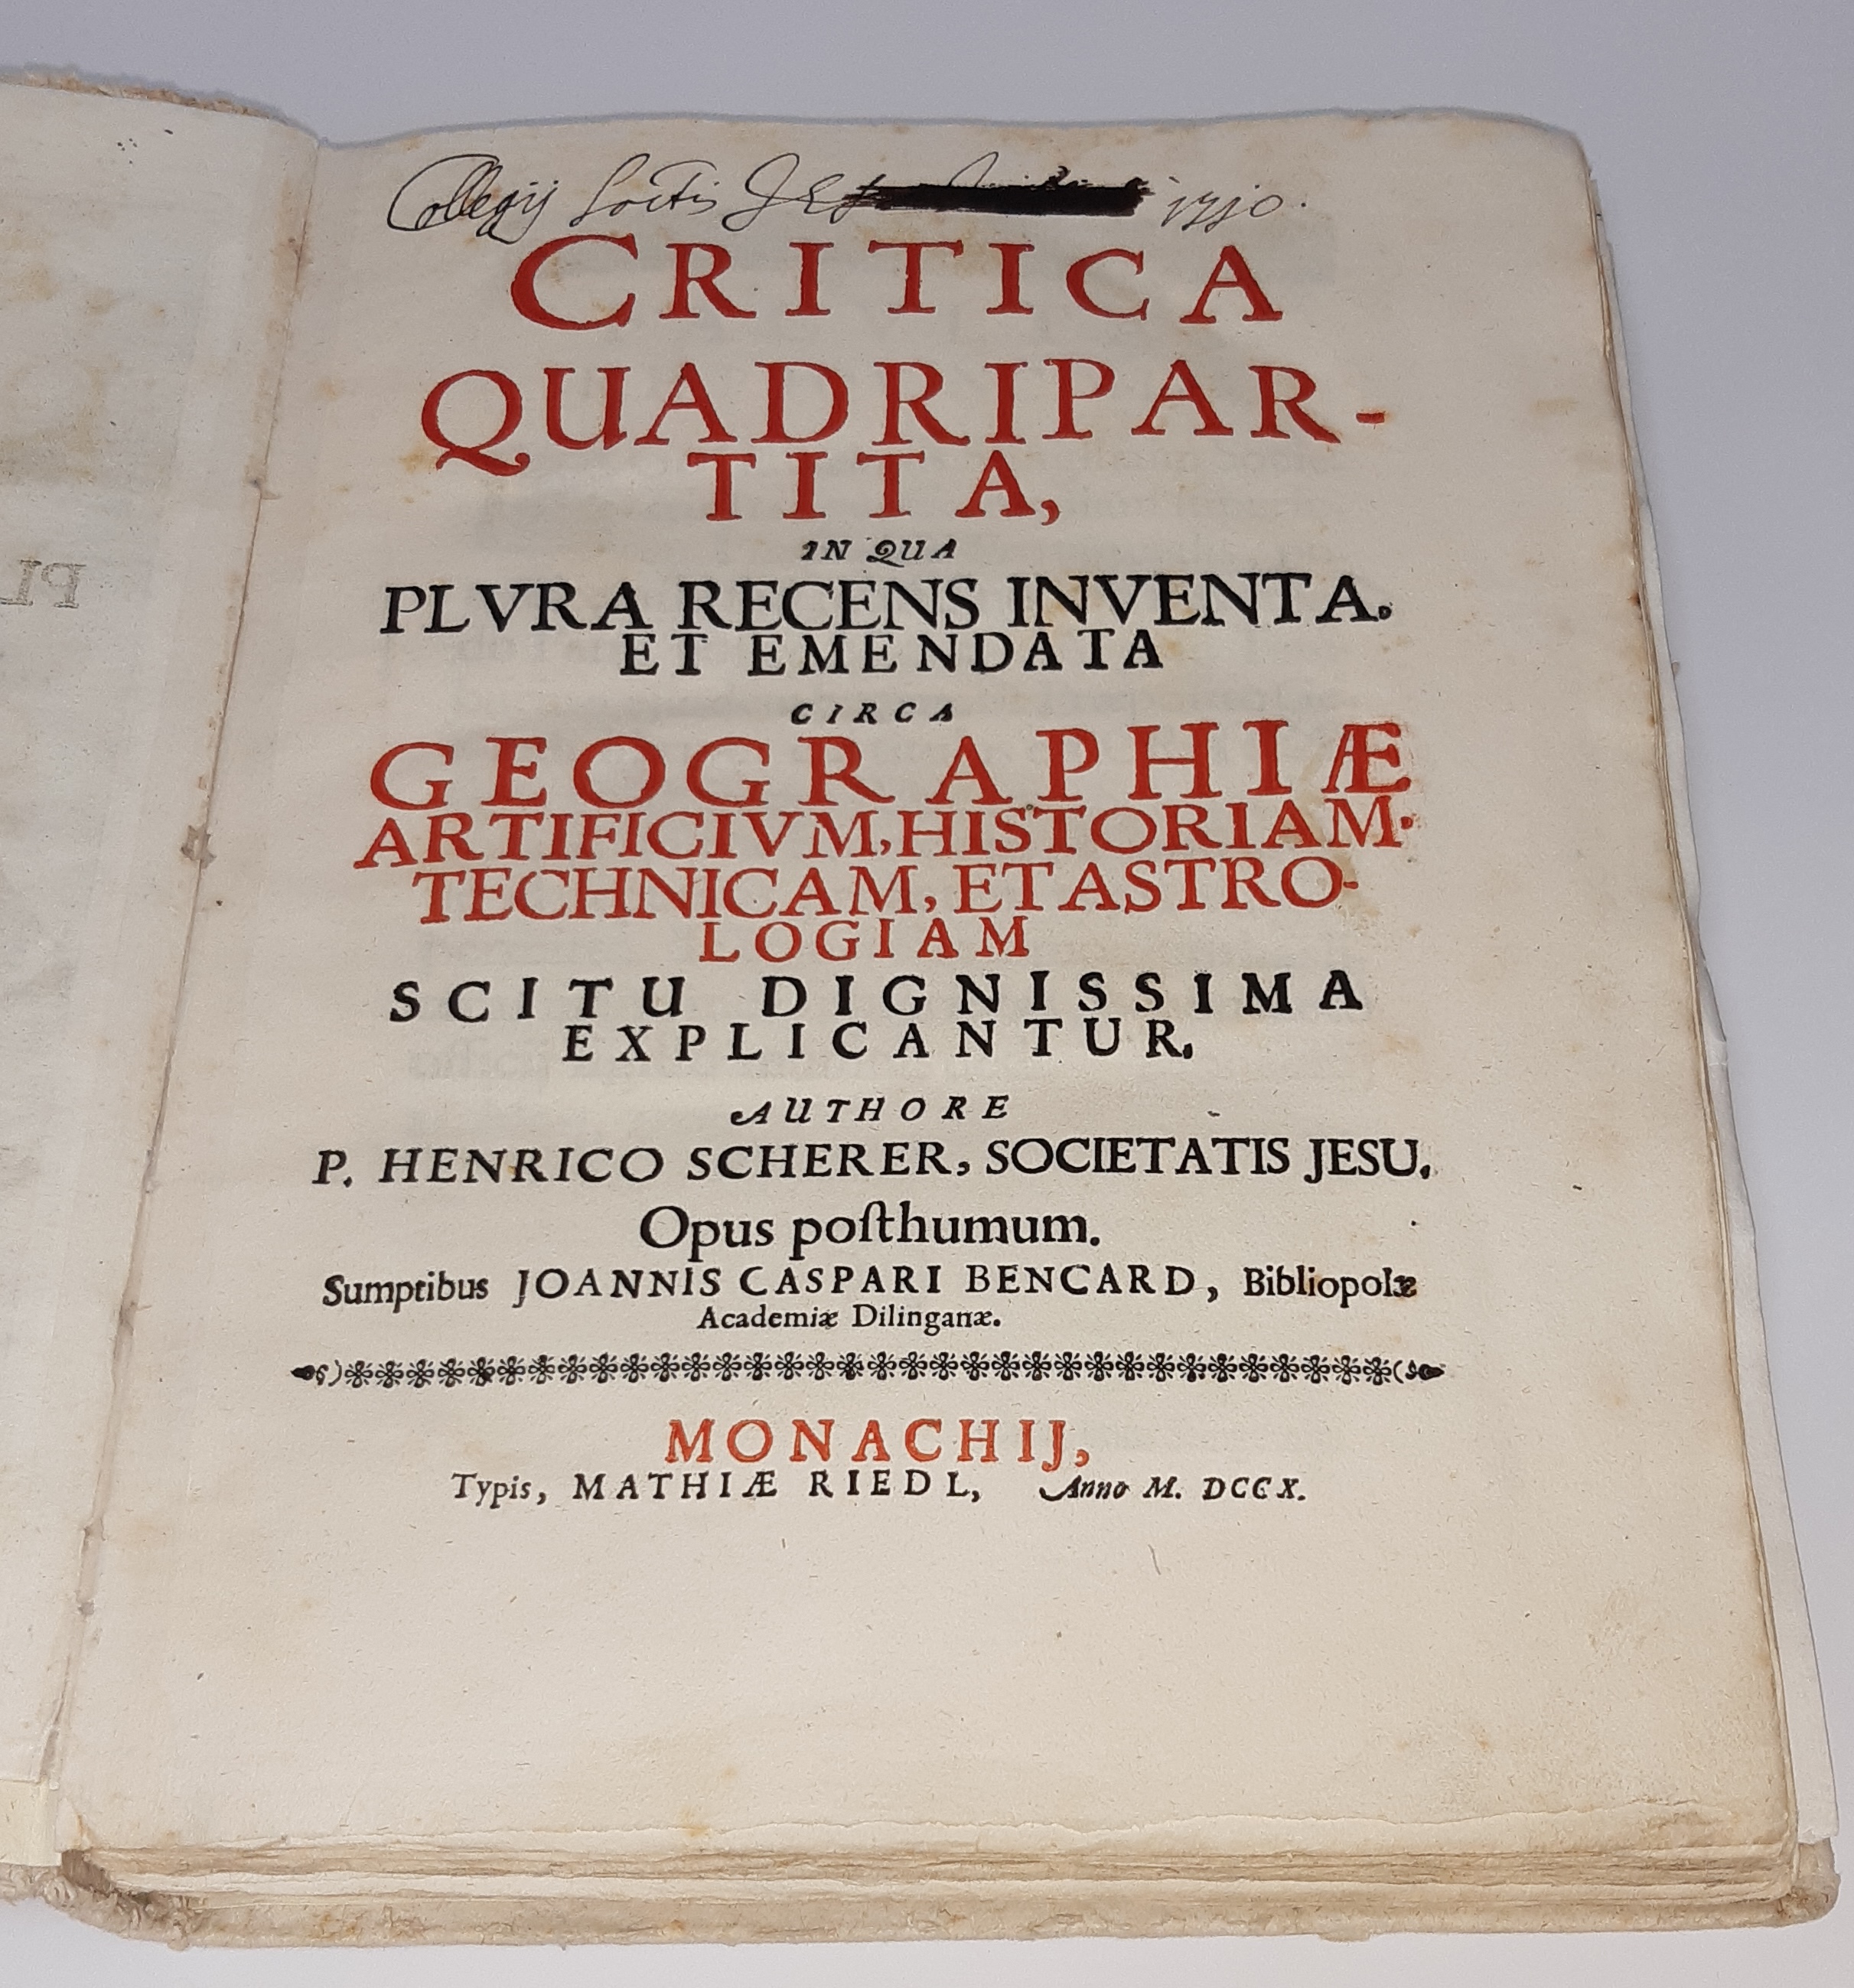 Collegij Soctis JES 1710.
CRITICA
QUADRIPAR-
TITA,
IN QUA
PLVRA RECENS INVENTA.
ET EMENDATA
CIRCA
GEOGRAPHIÆ
ARTIFICIVM, HISTORIAM.
TECHNICAM, ET ASTRO-
LOGIAM
SCITU DIGNISSIMA
EXPLICANTUR.
AUTHORE
P. HENRICO SCHERER, SOCIETATIS JESU.
Opus poſthumum.
Sumptibus JOANNIS CASPARI BENCARD, Bibliopolæ
Academiæ Dilinganæ.
MONACHIJ,
Typis, MATHIÆ RIEDL, Anno M. DCCX.